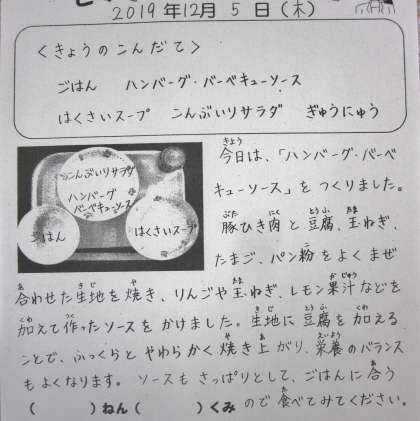 2019年12月5日(木)
<きょうのこんだて>
ごはん ハンバーグ・バーベキューソース
はくさいスープ こんぶいりサラダ ぎゅうにゅう
こんぶいりサラダ
ハンバーグ
バーベキューソース
ごはん
はくさいスープ
今日は、「ハンバーグ・バーベ
キューソース」をつくりました。
豚ひき肉と豆腐、玉ねぎ、
たまご、パン粉をよくまぜ
合わせた生地を焼き、りんごや玉ねぎ、レモン果汁などを
加えて作ったソースをかけました。生地に豆腐を加える
ことで、ふっくらとやわらかく焼き上がり、栄養のバランス
もよくなります。ソースもさっぱりとして、ごはんに合う
ので食べてみてください。
( )ねん( )くみ